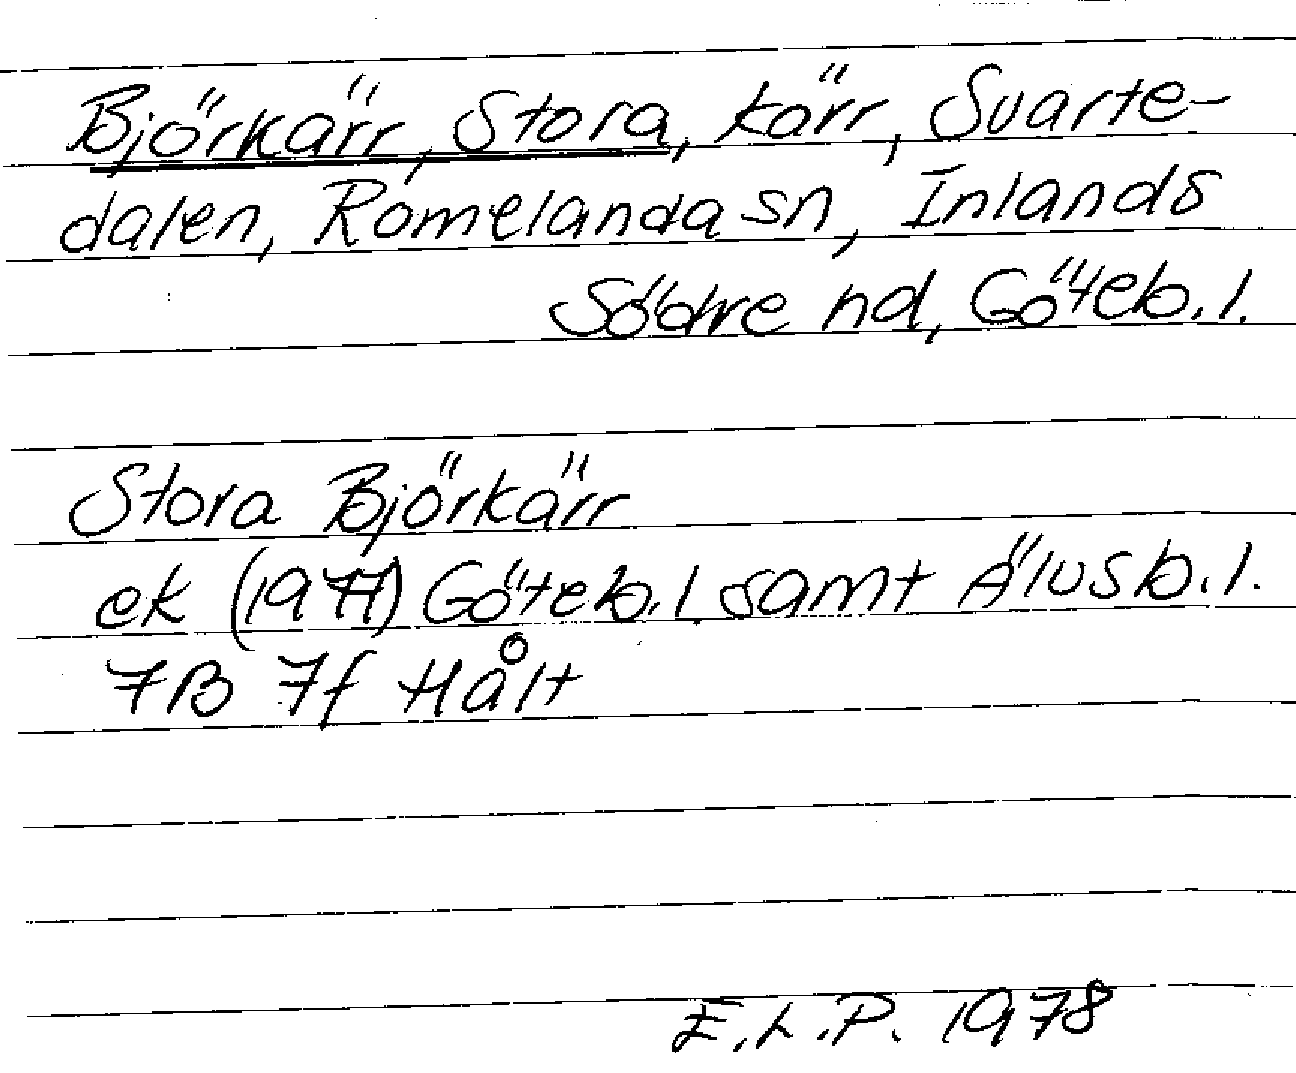 Björkärr, Stora, kärr, Svarte-
dalen, Romelanda sn, Inlands
Södre hd, Göteb. l.
Stora Björkärr
ek (1977) Göteb. l. samt Älvsb. l.
7B 7f Hålt
E.L.P. 1978